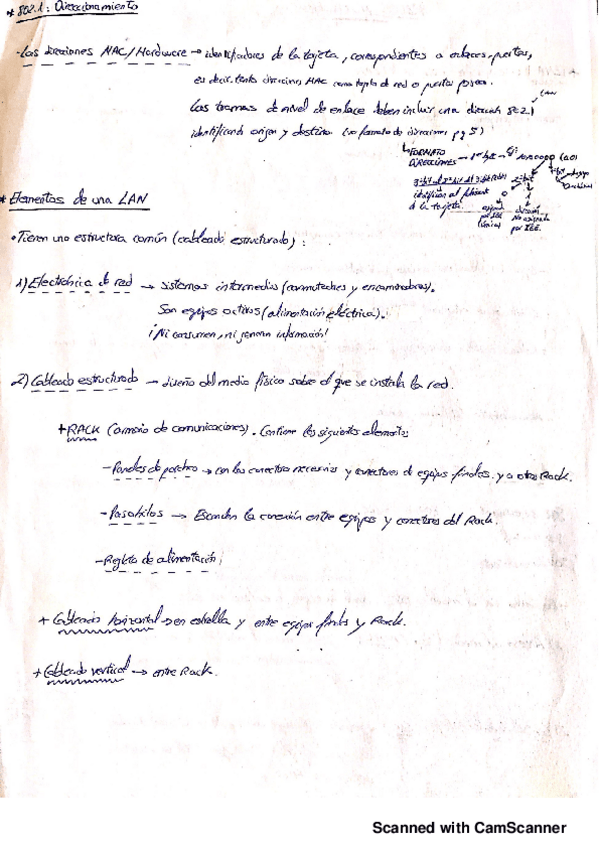 * 802.1: Direccionamiento
- Las direcciones MAC/Hardware → identificadores de la tarjeta, correspondientes a enlaces, puertos,
es decir, tantas direcciones MAC como tarjetas de red o puertos posea.
LAN
Las tramas de nivel de enlace deben incluir una direccion 802
identificando origen y destino (ver formato de direcciones pg 5)
FORMATO
DIRECCIONES → 1er byte →
identifican al fabricante
de la tarjeta
asignada
por IEEE
(única)
dirección
No asignada
por IEEE
* Elementos de una LAN
• Tienen una estructura común (cableado estructurado):
1) Electrónica de red → sistemas intermedios (conmutadores y encaminadores).
Son equipos activos (alimentación eléctrica).
¡Ni consumen, ni generan información!
2) Cableado estructurado → diseño del medio físico sobre el que se instala la red.
+ RACK (armario de comunicaciones). Contiene los siguientes elementos:
- Paneles de parcheo → con los conectores necesarios y conectores de equipos finales y a otros Rack.
- Pasahilos → Esconden la conexión entre equipos y conectores del Rack.
- Regleta de alimentación;
+ Cableado horizontal → en estrella y entre equipos finales y Rack.
+ Cableado vertical → entre Rack.
Scanned with CamScanner